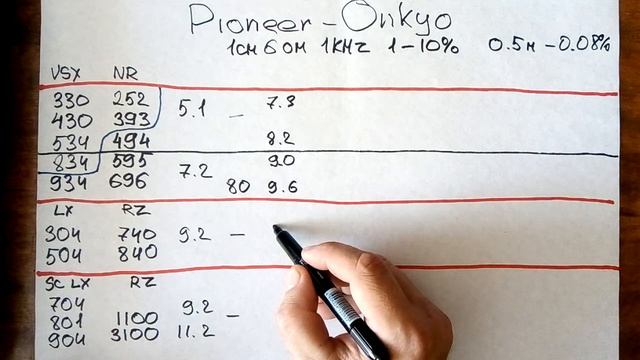 Pioneer - Onkyo
1см 6 ом 1KHz 1-10% 0.5м - 0.08%
VSX NR
330 252 5.1 - 7.3
430 393
534 494 8.2
834 595 7.2 9.0
934 696 80 9.6
LX RZ
304 740 9.2 -
504 840
SC LX RZ
704 9.2 -
801 1100
904 3100 11.2